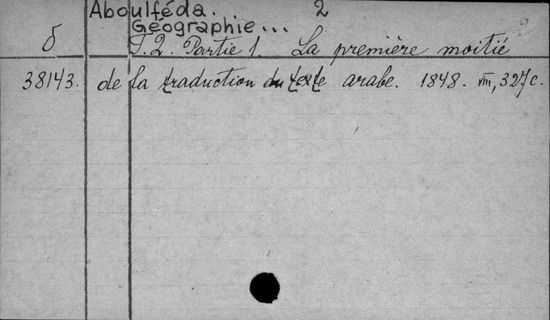 Aboulféda. 2
Géographie...
б T.2. Partie 1. La première moitié
38143. de la traduction du texte arabe. 1848. VIII, 327 c.